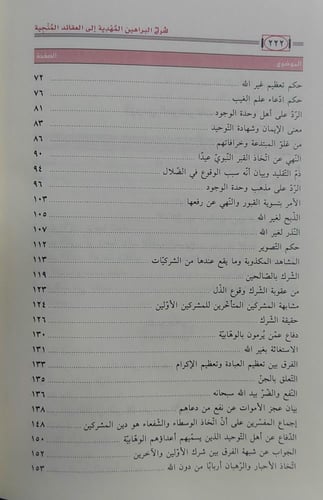 شرق البراهين المهدية إلى العقائد المنجية
٢٢٢
الموضوع الصفحة
حكم تعظيم غير الله ٧٢
حكم ادّعاء علم الغيب ٧٦
الرّدّ على أهل وحدة الوجود ٨١
معنى الإيمان وشهادة التّوحيد ٨٣
من غلوّ المبتدعة وخرافاتهم ٨٦
النّهي عن اتّخاذ القبر النّبويّ عيدًا ٩٠
ذمّ التقليد وبيان أنّه سبب الوقوع في الضّلال ٩٤
الرّدّ على مذهب وحدة الوجود ٩٦
الأمر بتسوية القبور والنّهي عن رفعها ١٠٣
الذّبح لغير الله ١٠٥
النّذر لغير الله ١٠٧
حكم التّصوير ١١٢
المشاهد المكذوبة وما يقع عندها من الشركيّات ١١٣
الشّرك بالصّالحين ١١٩
من عقوبة الشّرك وقوع الذّل ١٢٣
مشابهة المشركين المتأخّرين للمشركين الأوّلين ١٢٤
حقيقة الشّرك ١٢٦
دفاع عمّن يُرمون بالوهّابيّة ١٣٠
الاستغاثة بغير الله ١٣١
الفرق بين تعظيم العبادة وتعظيم الإكرام ١٣٣
التّعلق بالجنّ ١٣٥
النّفع والضّرّ بيد الله سبحانه ١٣٦
بيان عجز الأموات عن نفع من دعاهم ١٣٨
إجماع المفسّرين على أنّ اتّخاذ الوسطاء والشّفعاء هو دين المشركين ١٤٨
الدّفاع عن أهل التّوحيد الذين يسمّيهم أعداؤهم الوهّابيّة ١٥٠
الجواب عن شبهة الفرق بين شرك الأوّلين والآخرين ١٥٢
اتّخاذ الأحبار والرّهبان أربابًا من دون الله ١٥٣